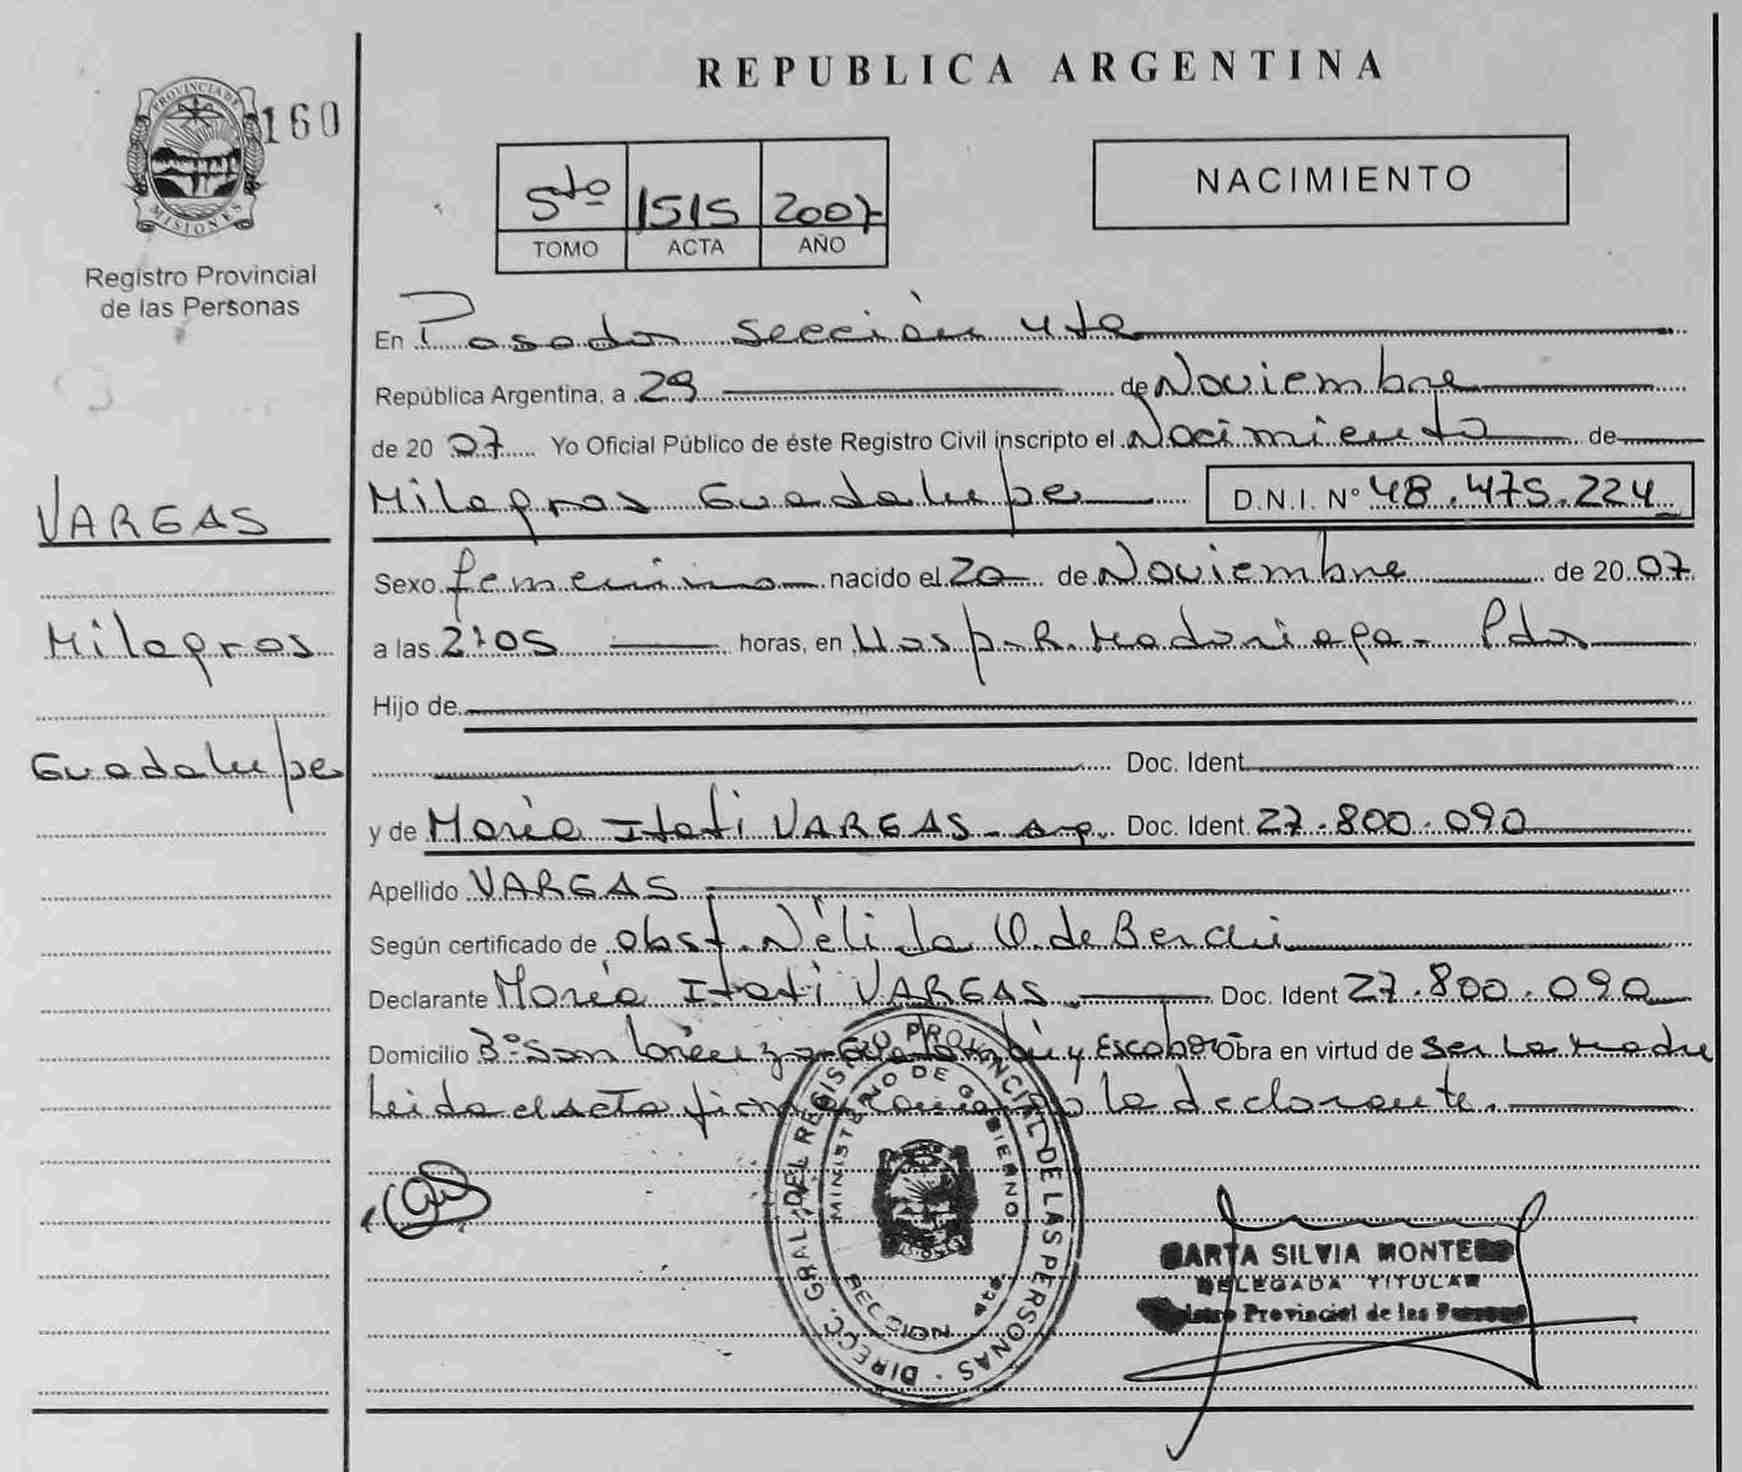 REPUBLICA ARGENTINA
PROVINCIA DE
MISIONES
160
Registro Provincial
de las Personas
5to 1515 2007
TOMO ACTA AÑO
NACIMIENTO
En Posadas sección 4ta
República Argentina, a 29 de Noviembre
de 20 07 Yo Oficial Público de éste Registro Civil inscripto el Nacimiento de
Milagros Guadalupe D.N.I. Nº 48.475.224
VARGAS
Milagros
Guadalupe
Sexo femenino nacido el 20 de Noviembre de 20 07
a las 2105 horas, en Hosp. R. Madariaga - Pdas
Hijo de
Doc. Ident
y de María Itatí VARGAS - arg. Doc. Ident 27.800.090
Apellido VARGAS
Según certificado de obst. Nélida O. de
Declarante María Itatí VARGAS Doc. Ident 27.800.090
Domicilio Bº San Lorenzo y Escobar Obra en virtud de ser la madre
Leida el acta firma la declarante.
DIRECC. GRAL. DEL REGISTRO PROVINCIAL DE LAS PERSONAS
MINISTERIO DE GOBIERNO
SECCION 4ta
MARTA SILVIA MONTERO
DELEGADA TITULAR
Provincial de las Personas